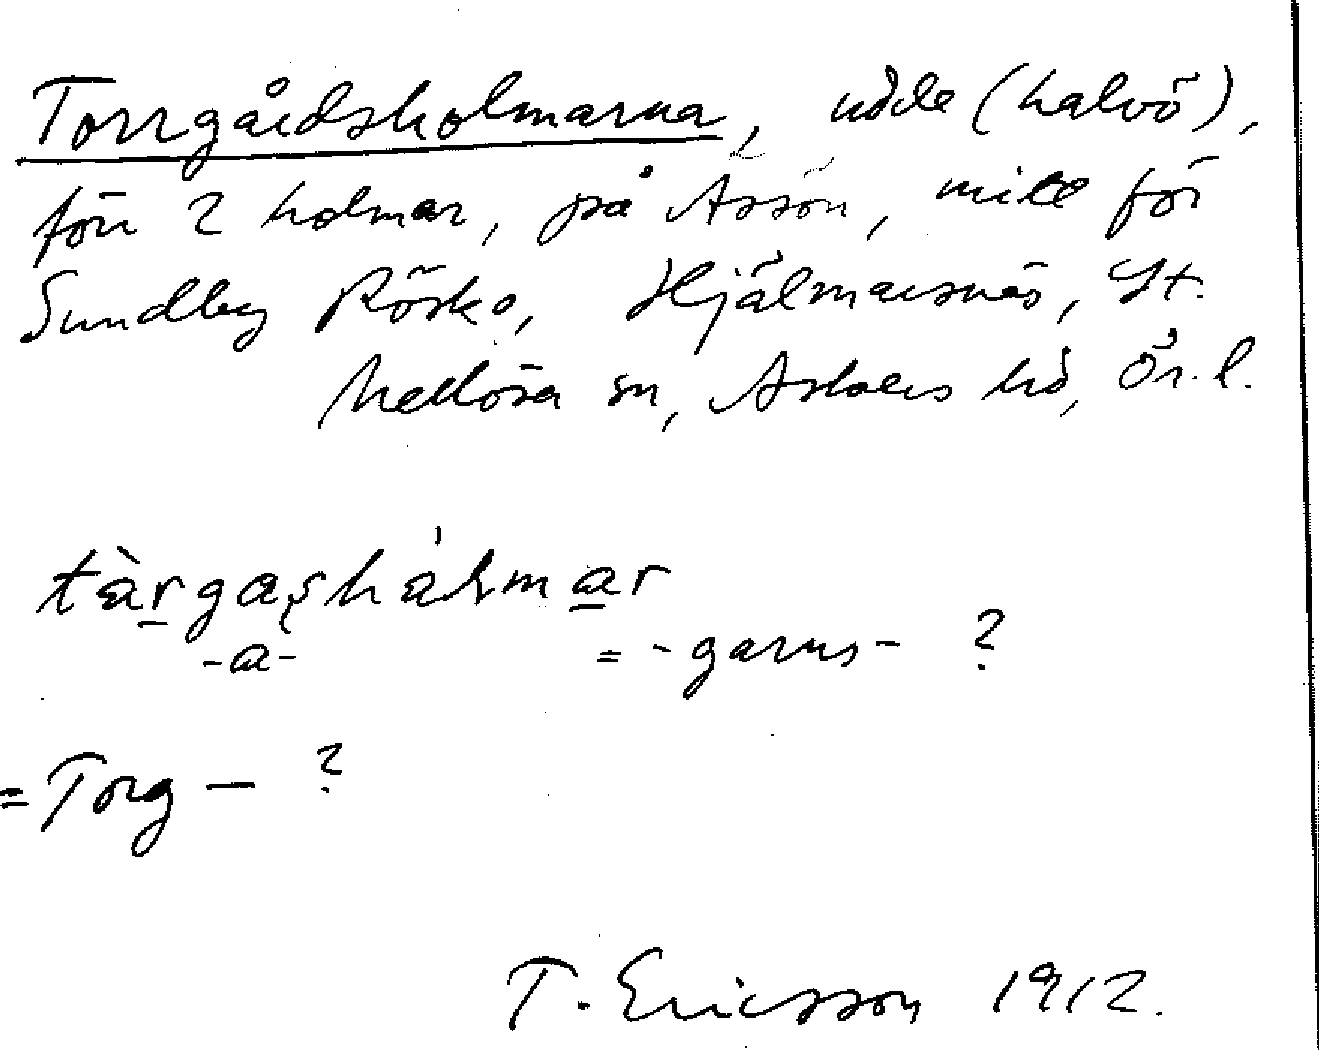 Torrgårdsholmarna, udde (halvö),
förr 2 holmar, på Åssön, mitt för
Sundby Rösko, Hjälmarsnäs, St.
Mellösa sn, Askers hd, Ör. l.
tàrgashàlmar
-a- = -garns- ?
= Torg – ?
T. Ericsson 1912.